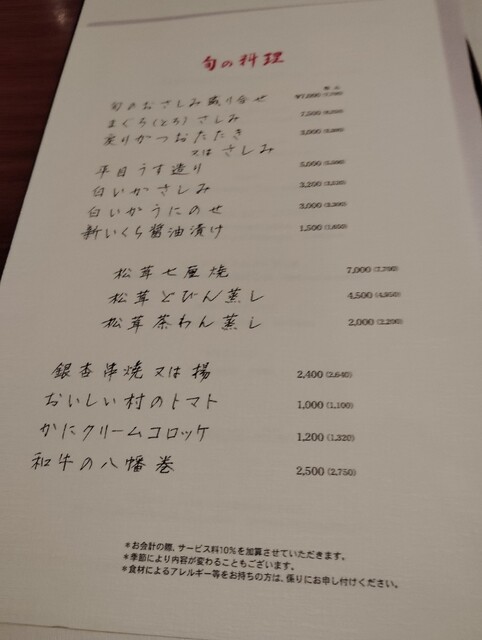 旬の料理
税込
旬のおさしみ盛り合せ ¥7,000 (7,700)
まぐろ(とろ)さしみ 7,500 (8,250)
炙りかつおたたき 3,000 (3,300)
又はさしみ
平目うす造り 3,000 (3,300)
白いかさしみ 3,200 (3,520)
白いかうにのせ 3,000 (3,300)
新いくら醤油漬け 1,500 (1,650)
松茸七厘焼 7,000 (7,700)
松茸どびん蒸し 4,500 (4,950)
松茸茶わん蒸し 2,000 (2,200)
銀杏串焼又は揚 2,400 (2,640)
おいしい村のトマト 1,000 (1,100)
かにクリームコロッケ 1,200 (1,320)
和牛の八幡巻 2,500 (2,750)
*お会計の際、サービス料10%を加算させていただきます。
*季節により内容が変わることもございます。
*食材によるアレルギー等をお持ちの方は、係りにお申し付けください。